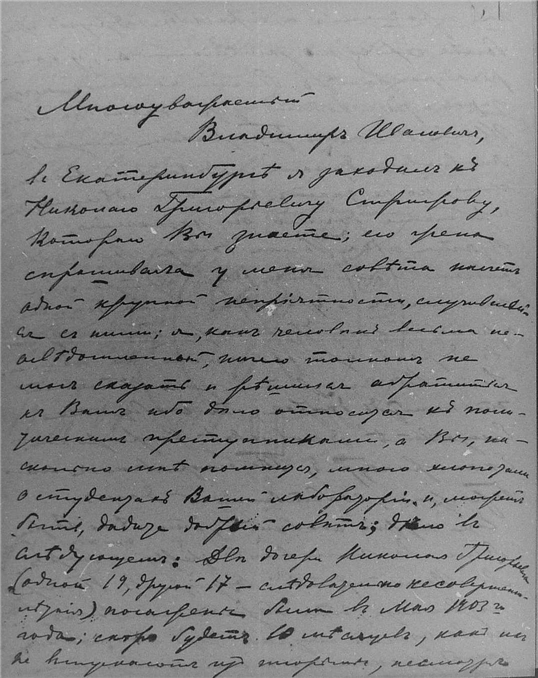 Многоуважаемый
Владимиръ Ивановичъ,
въ Екатеринбургѣ я заходилъ къ
Николаю Григорьевичу Стрижову,
котораго Вы знаете; его жена
спрашивала у меня совѣта насчетъ
одной крупной непрiятности, случившей-
ся съ ними; я, какъ человѣкъ весьма не-
освѣдомленный, ничего толкомъ не
могъ сказать и рѣшилъ обратиться
къ Вамъ ибо дѣло относится къ поли-
тическимъ преступникамъ, а Вы, на-
сколько мнѣ помнится, много хлопотали
о студентахъ Вашей лабораторiи и, можетъ
быть, дадите добрый совѣтъ; дѣло въ
слѣдующемъ: Двѣ дочери Николая Григорьевича
(одной 19, другой 17 — слѣдовательно несовершенно-
лѣтнiя) посажены были въ Маѣ 1903 г.
года; скоро будетъ 10 мѣсяцевъ, какъ ихъ
не выпускаютъ изъ тюрьмы, несмотря